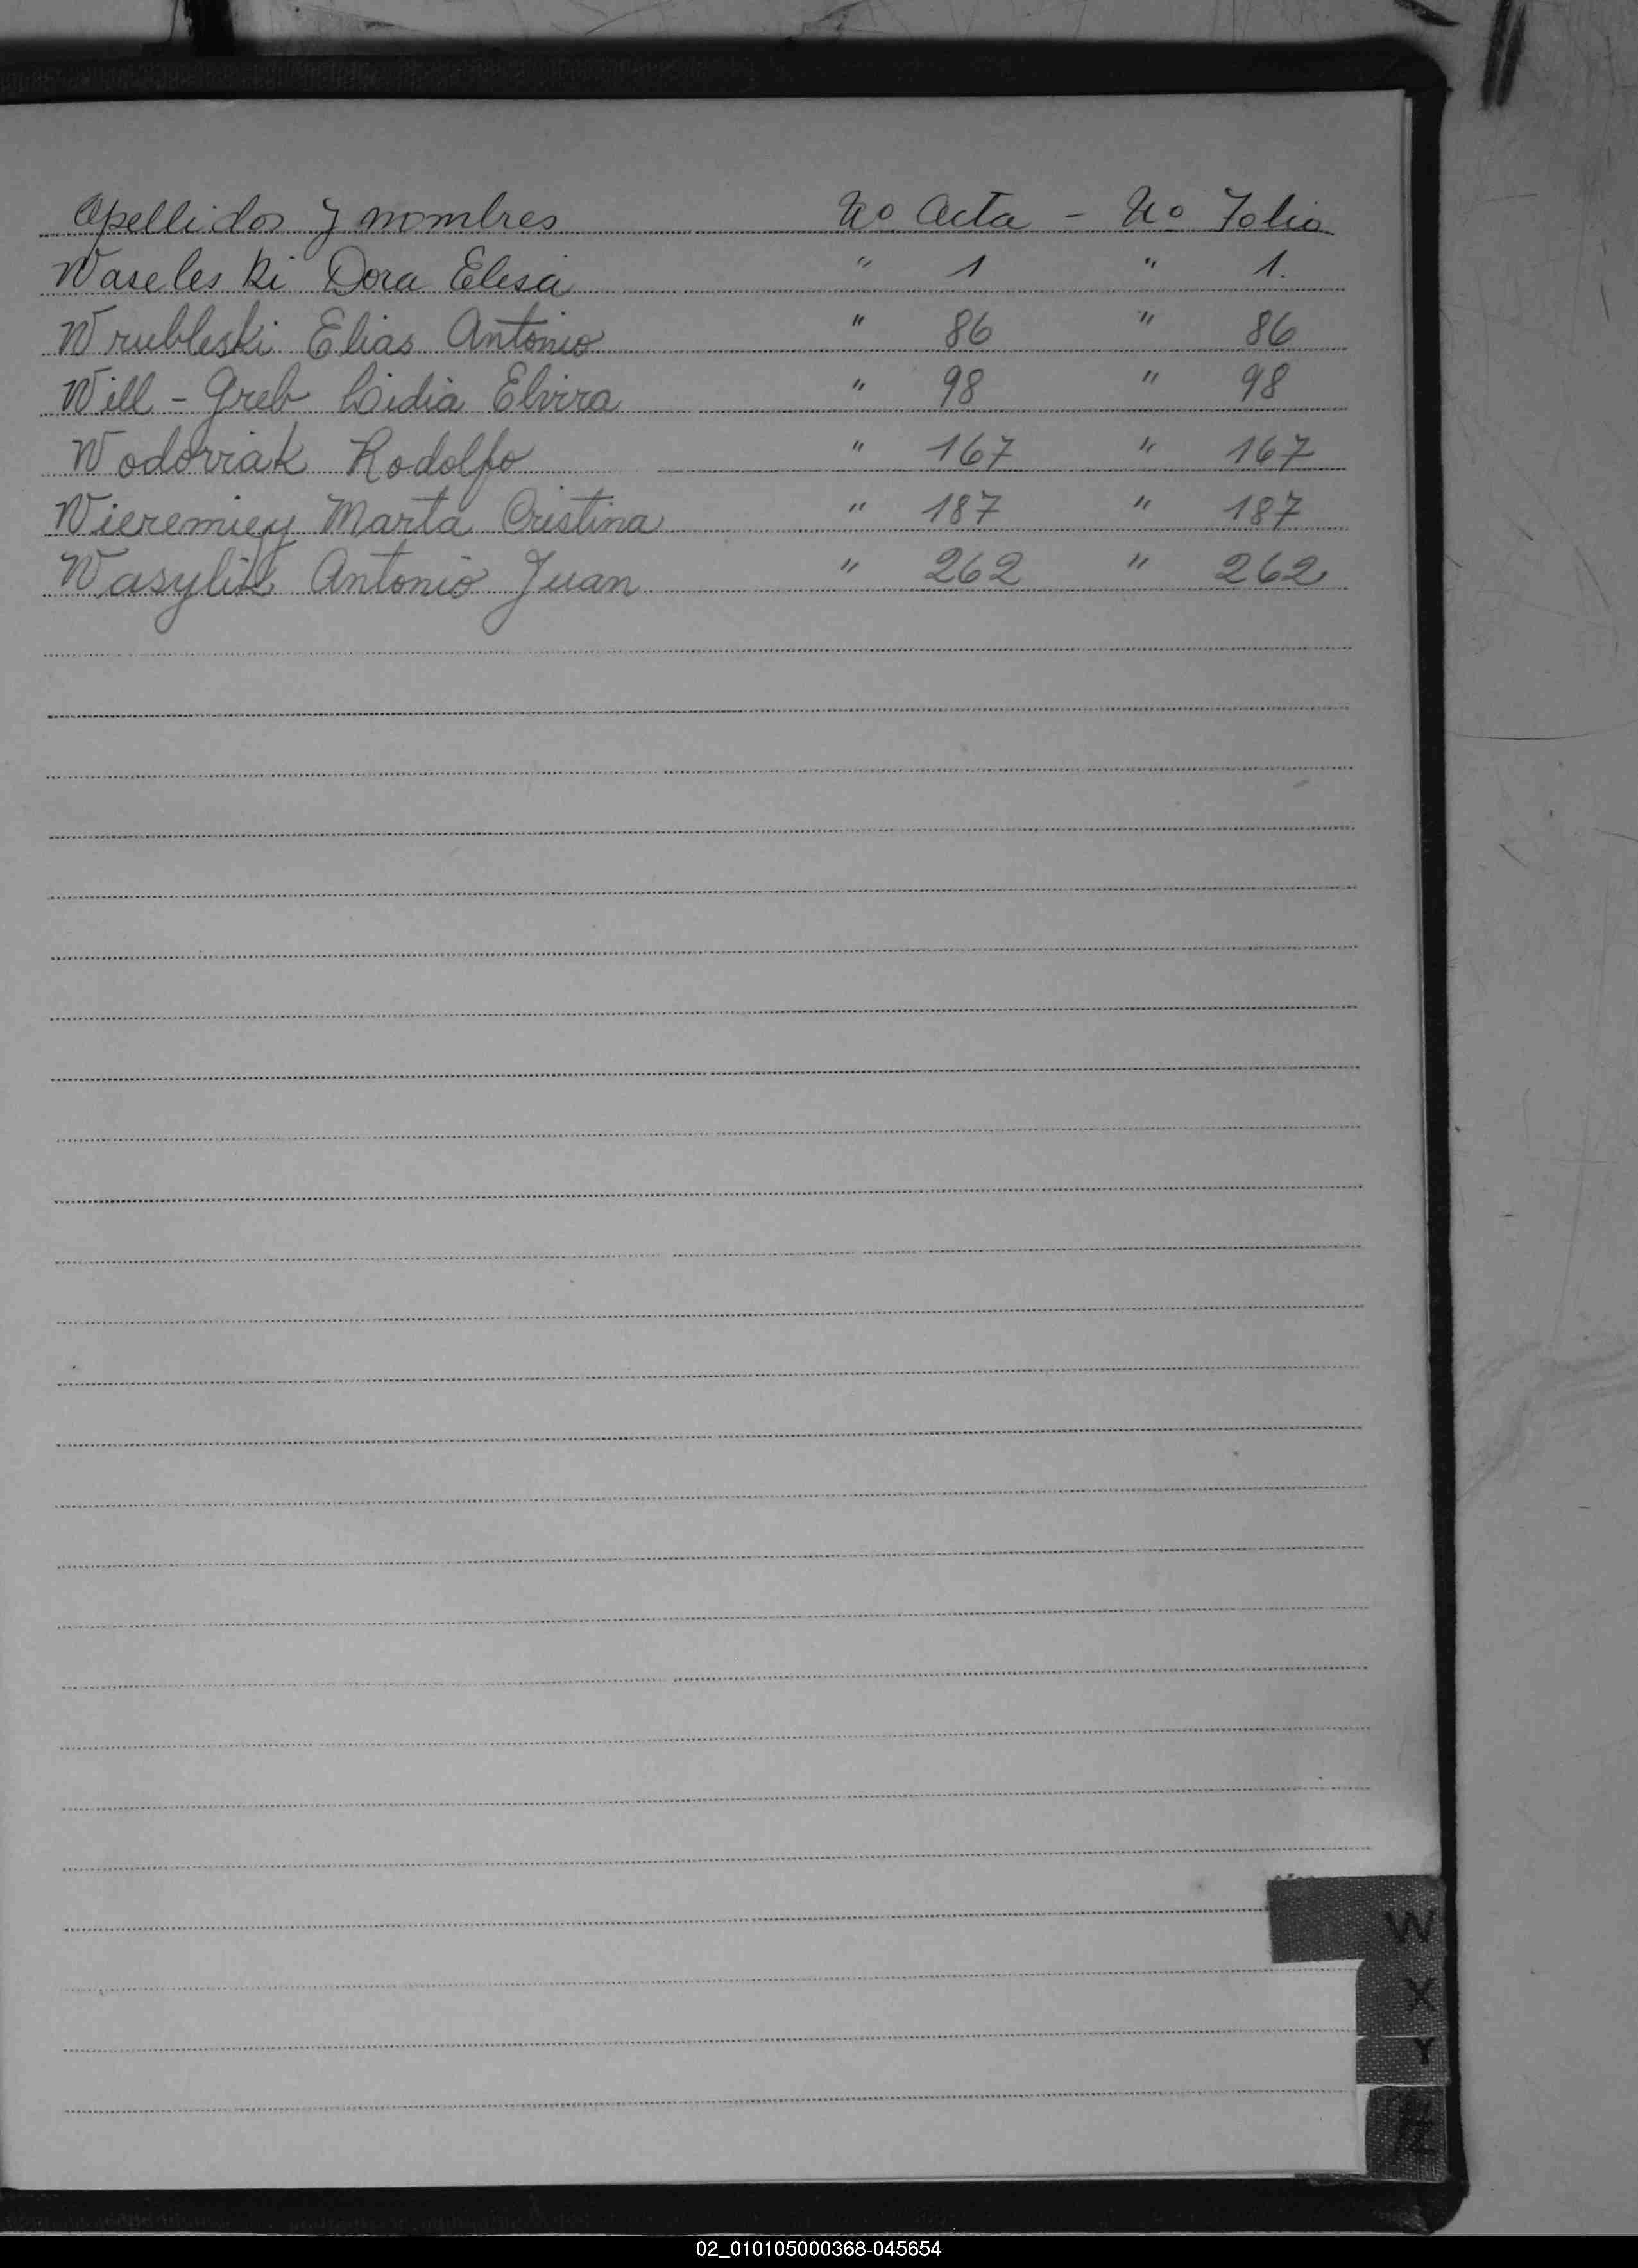 Apellidos y nombres Nº Acta - Nº Folio
Waseleski Dora Elesa " 1 " 1.
Wrubleski Elias Antonio " 86 " 86
Will - Greb Lidia Elvira " 98 " 98
Wodoviak Rodolfo " 167 " 167
Wieremiey Marta Cristina " 187 " 187
Wasylik Antonio Juan " 262 " 262
W
X
Y
Z
02_010105000368-045654